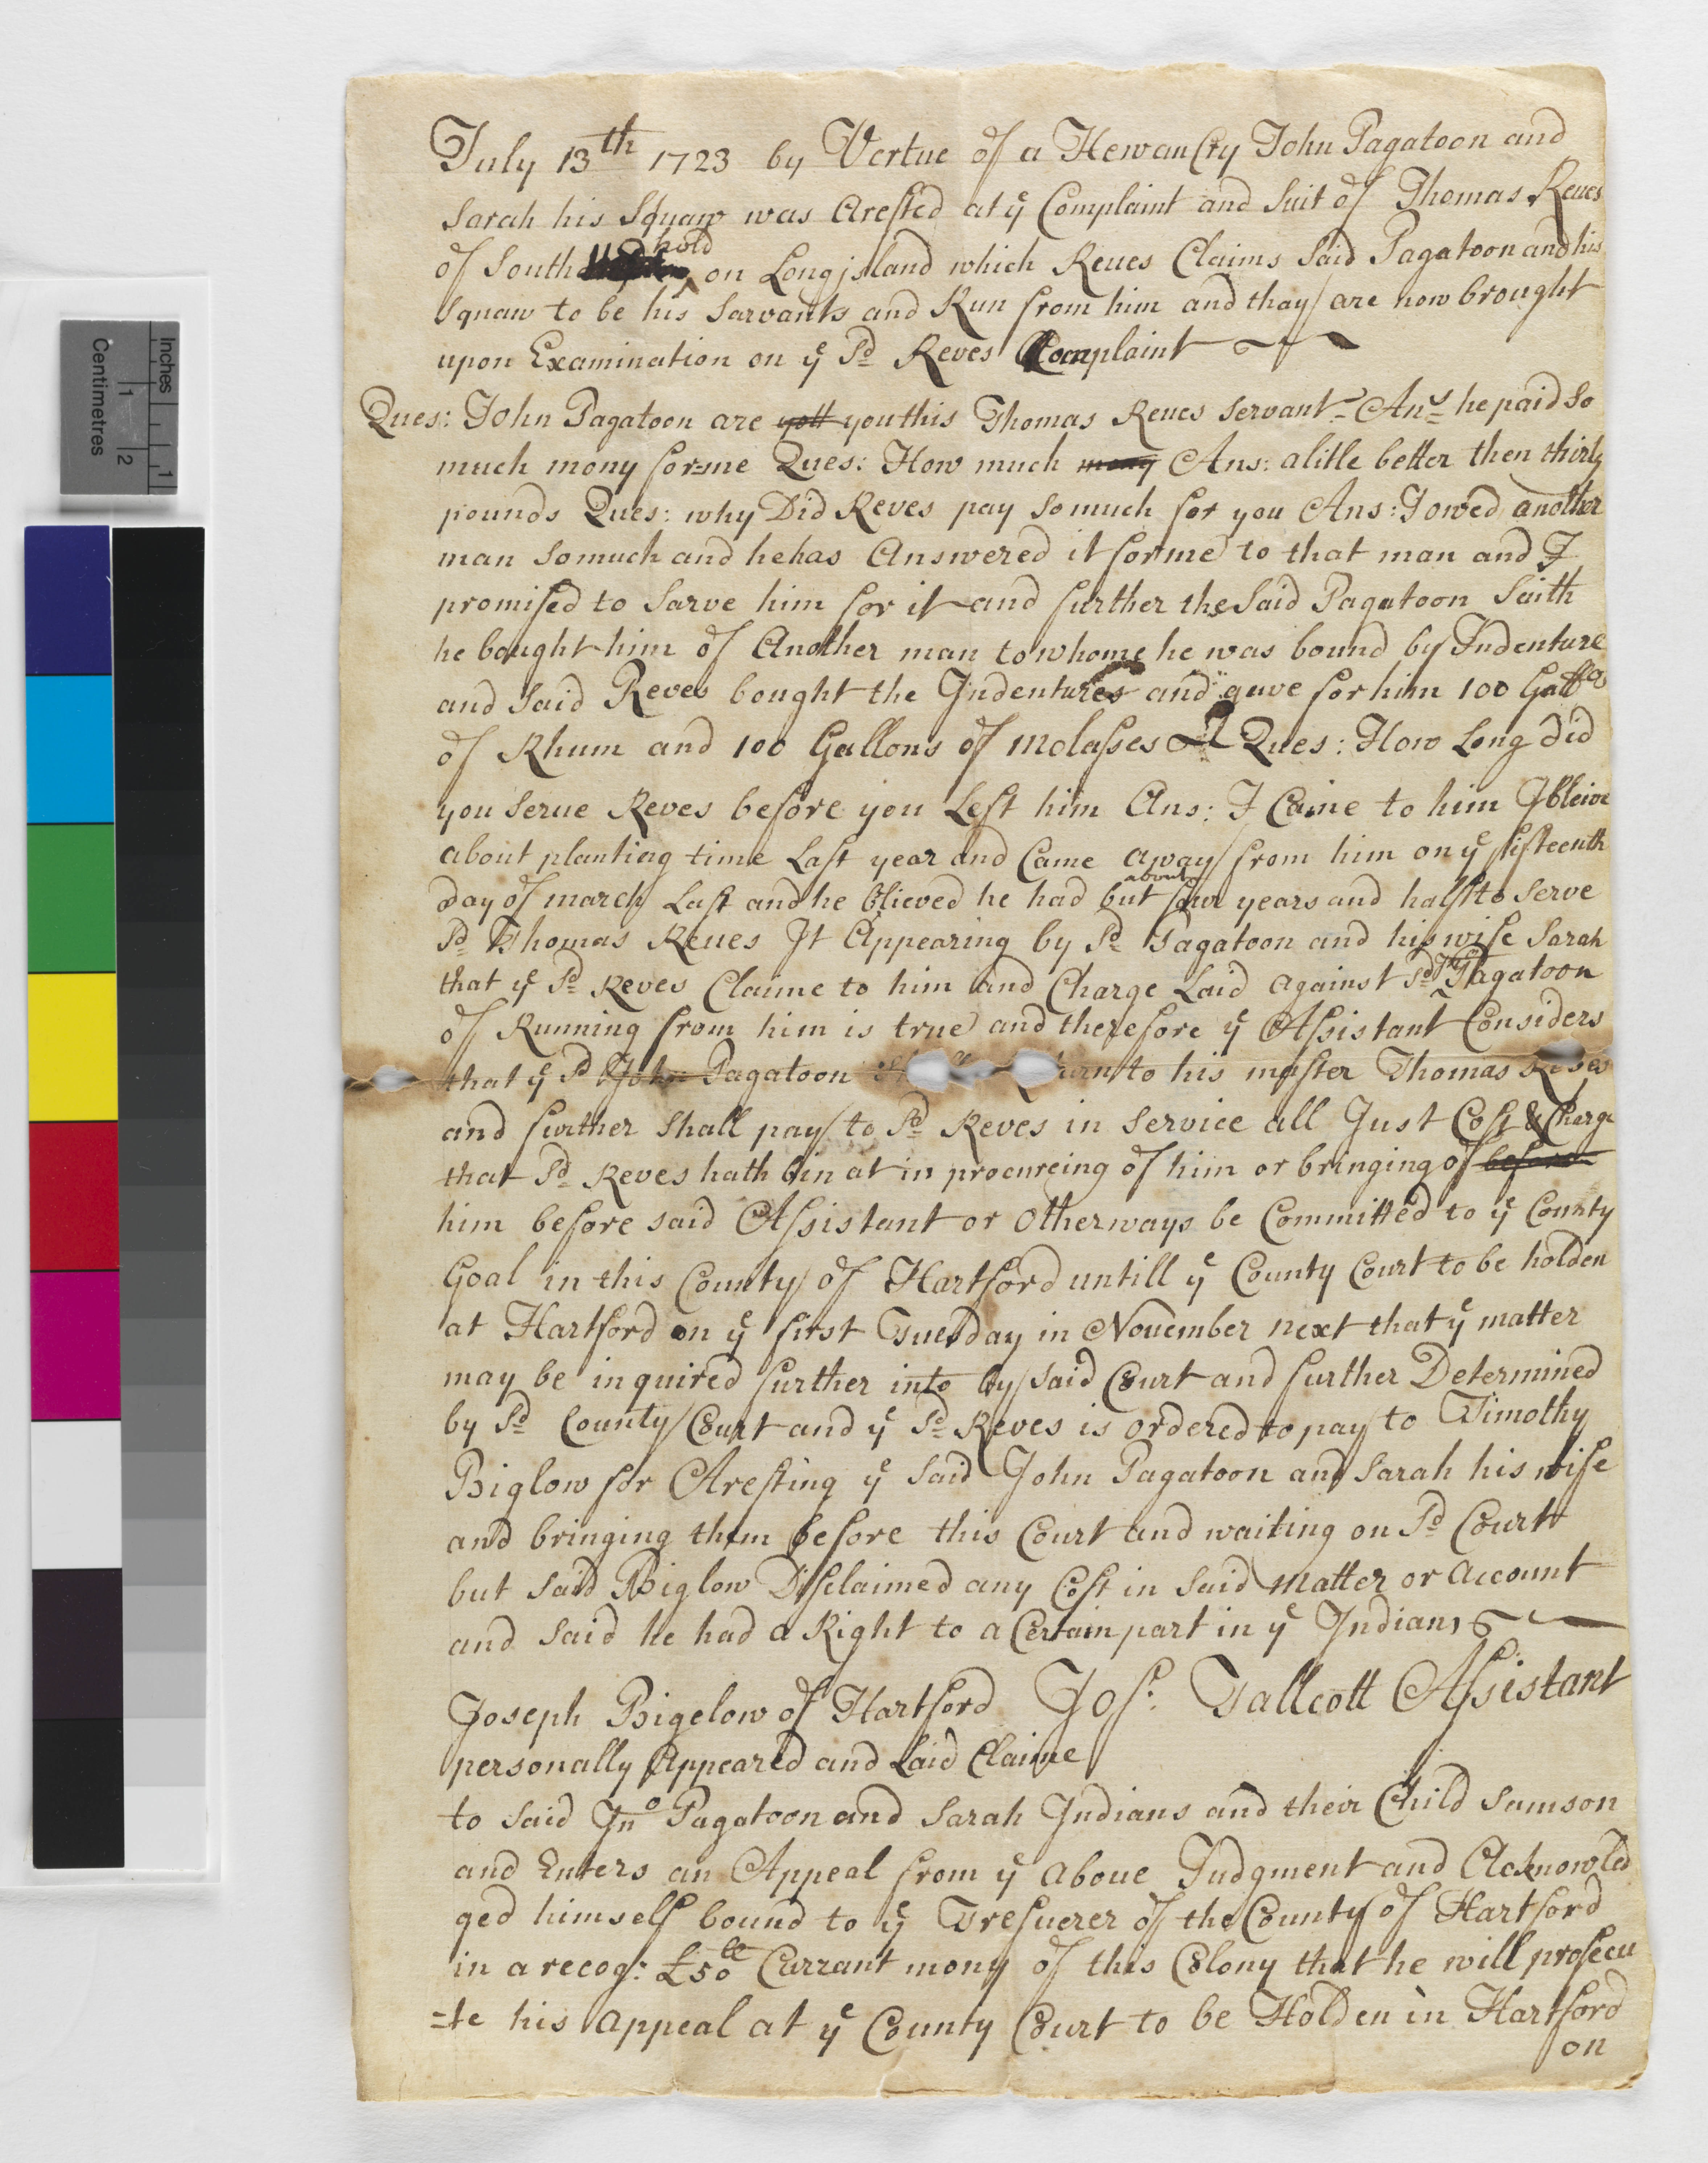 July 13th 1723 by Vertue of a Hewan Cry John Pagatoon and
Sarah his Squaw was Arested at ye Complaint and Suit of Thomas Reues
of South hold on Long island which Reues Claims Said Pagatoon and his
Squaw to be his Sarvants and Run from him and thay are now brought
upon Examination on ye Sd Reves Complaint
Ques: John Pagatoon are you this Thomas Reues Servant Ans he paid so
much mony for=me Ques: How much mony Ans: a litle better then thirty
pounds Ques: why Did Reves pay so much for you Ans: I owed another
man so much and he has Answered it for me to that man and I
promised to Sarve him for it and further the Said Pagatoon Saith
he bought him of Another man to whome he was bound by Indenture
and Said Reves bought the Indentures and gave for him 100 Gallos
of Rhum and 100 Gallons of Molasses Ques: How Long did
you Serue Reves before you Left him Ans: I Came to him I bleive
about planting time Last year and Came away from him on ye fifteenth
Day of march Last and he blieved he had but about four years and half to Serve
Sd Thomas Reues It Appearing by Sd Pagatoon and his wife Sarah
that ye Sd Reves Claime to him and Charge Laid against Sd Pagatoon
of Running from him is true and therefore ye Assistant Considers
that ye Sd John Pagatoon to his master Thomas Reves
and further Shall pay to Sd Reves in Service all Just Cost & Charge
that Sd Reves hath bin at in procureing of him or bringing of before
him before said Assistant or Otherways be Committed to ye County
Goal in this County of Hartford untill ye County Court to be holden
at Hartford on ye first Tuesday in November next that ye matter
may be inquired further into by Said Court and further Determined
by Sd County Court and ye Sd Reves is ordered to pay to Timothy
Biglow for Aresting ye Said John Pagatoon and Sarah his wife
and bringing them before this Court and waiting on Sd Court
but Said Biglow Disclaimed any Cost in Said Matter or Account
and Said he had a Right to a Certain part in ye Indians
Joseph Bigelow of Hartford Jos: Tallcott Assistant
personally Appeared and Laid Claime
to Said Jno Pagatoon and Sarah Indians and their Child Samson
and Enters an Appeal from ye Aboue Judgment and Acknowled
ged himself bound to ye Tresuerer of the County of Hartford
in a recog: £50 Currant mony of this Colony that he will prosecu
=te his Appeal at ye County Court to be Holden in Hartford
on
Inches
1
Centimetres
1
2